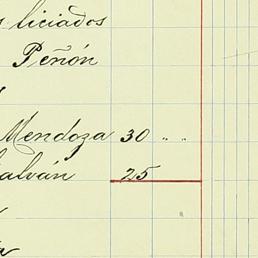 liciados
Peñón
Mendoza 30 " "
Galván 25